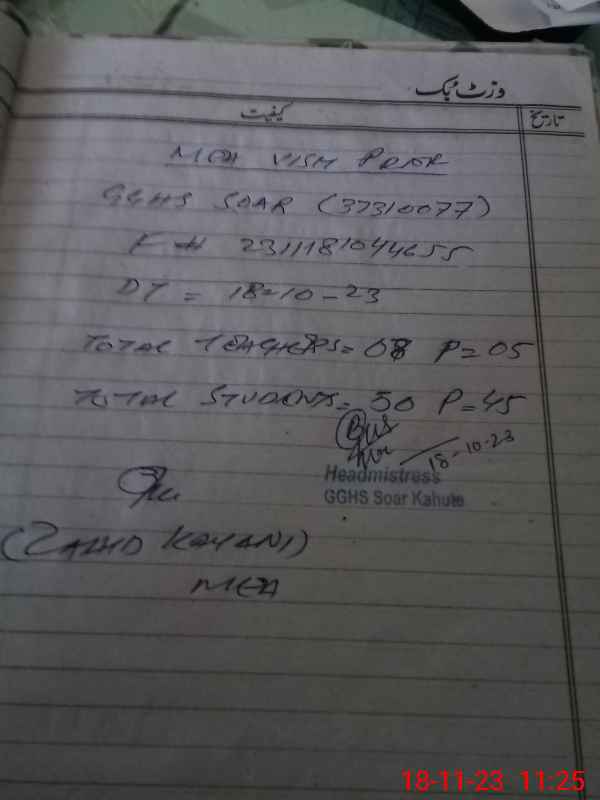 وزٹ بک
کیفیت
تاریخ
MEA VISIT PROFR
GGHS SOAR (37310077)
F # 2311181044655
DT = 18-10-23
TOTAL TEACHERS = 08 P=05
TOTAL STUDENTS = 50 P=45
18-10-23
Headmistress
GGHS Soar Kahuta
(ZAHID KAYANI)
MEA
18-11-23 11:25